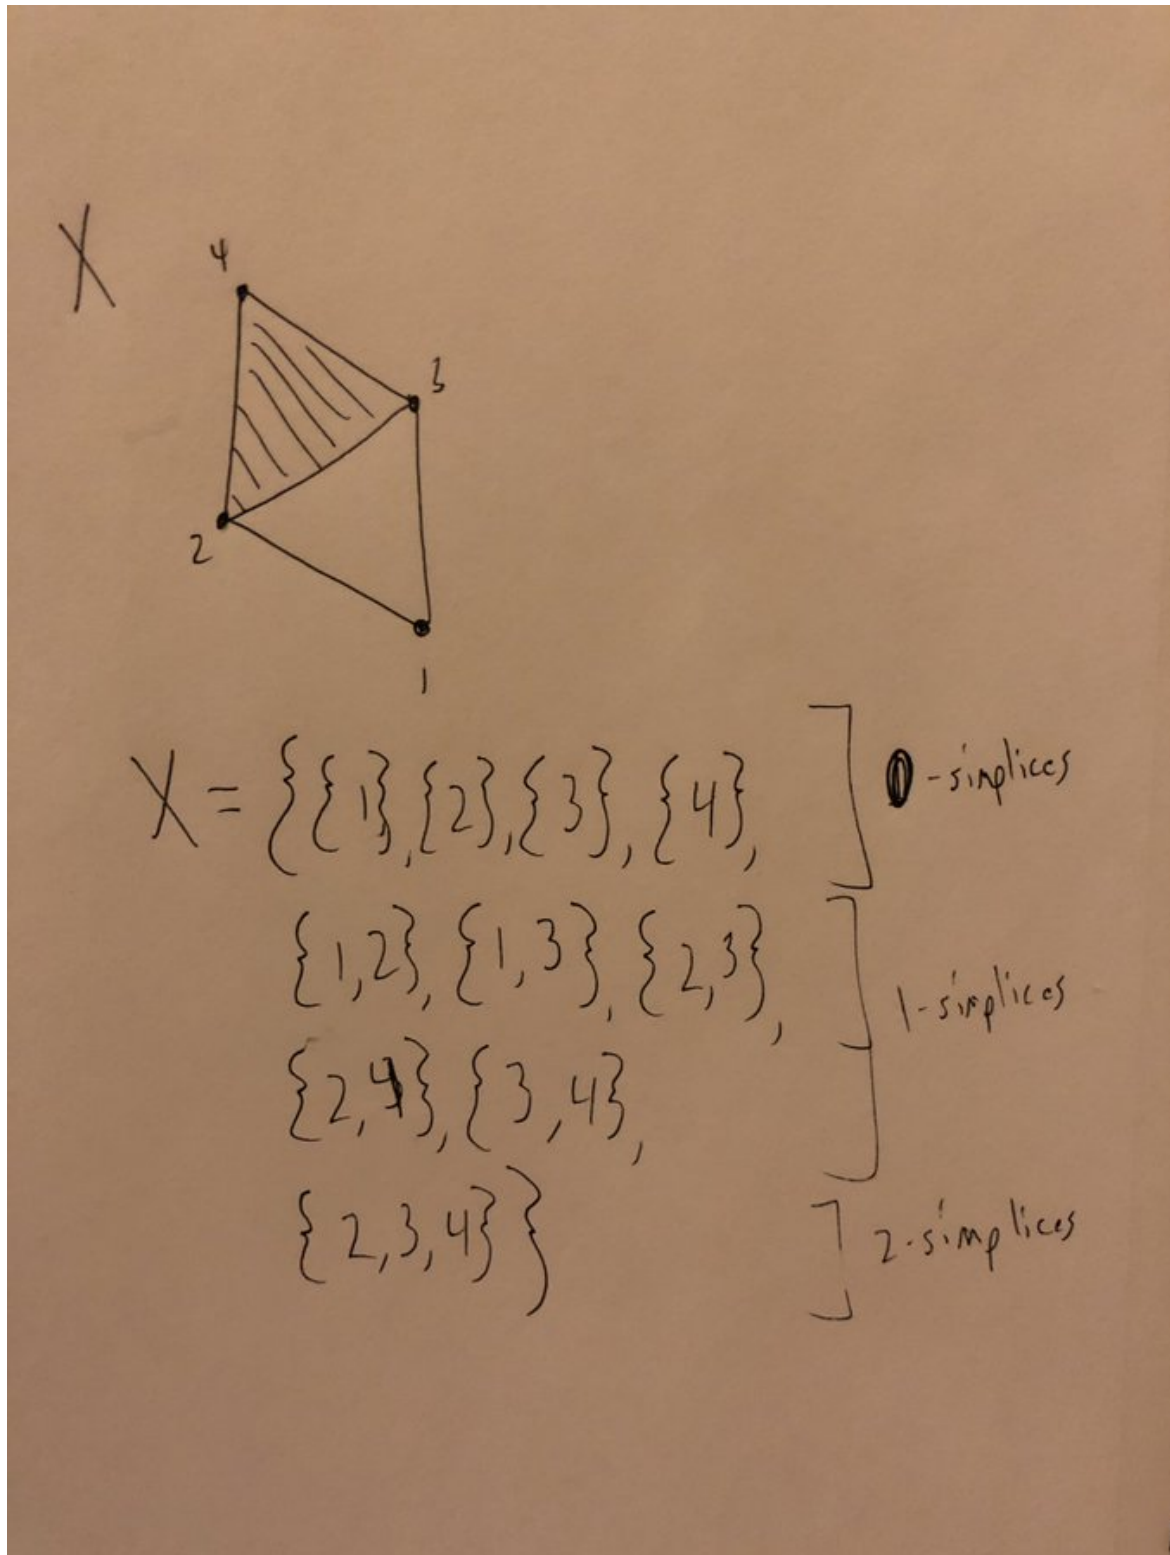 X
4
3
2
1
X = {{1}, {2}, {3}, {4}, 0-simplices
{1,2}, {1,3}, {2,3}, 1-simplices
{2,4}, {3,4},
{2,3,4}} 2-simplices